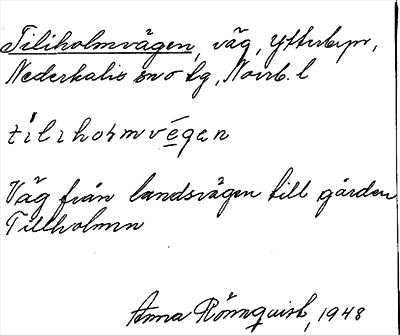 Tiliholmvägen, väg, Ytterbyn,
Nederkalix sn o tg, Norrb. l
tiliholmvégen
Väg från landsvägen till gården
Tillholmen
Anna Rönnquist, 1948